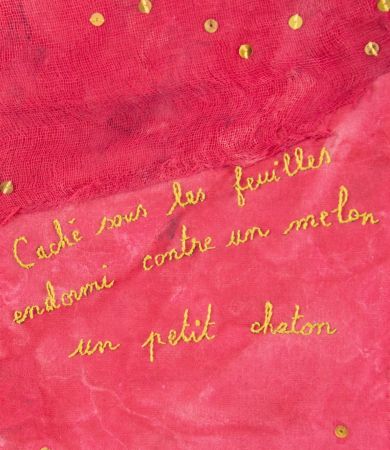 Caché sous les feuilles
endormi contre un melon
un petit chaton